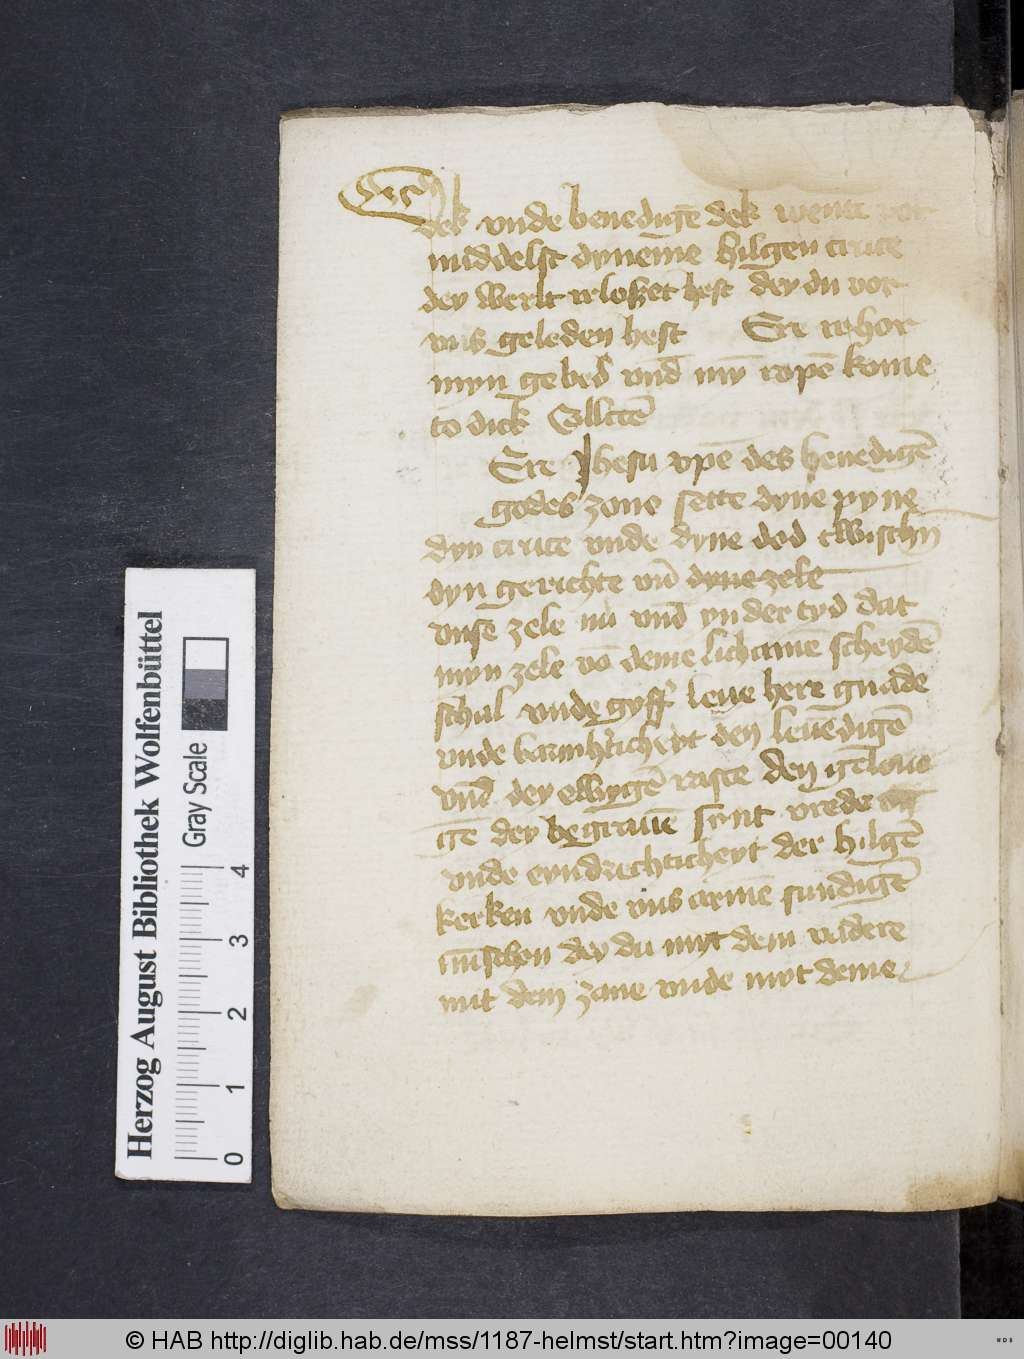 dek vnde benedigē dek wente vor
middelst dyneme hilgen cruce
dey werlt irloszet hest dey du vor
vns geleden hest Ere vphor
myn gebed vnd my ropē kome
to dick Collctē
Ere Jhesu xpē des benedigē
godes zone sette dyne pyne
dyn cruce vnde dyne dod twischn
dyn gerichte vn̄ dyne zele
vnse zele nu vnd yn der tyd dat
myn zele vō deme lichamē scheydē
schal vnde gyff leue here gnade
vnde barmhticheyt den leuēdigē
vnd dey ewygē raste den geloue
gē dey begrauē synt vrede
vnde eyndrechticheyt der hilgē
kerken vnde vns armē sundigē
mīschen dey du myt dem vadere
mit dem zone vnde myt deme
Herzog August Bibliothek Wolfenbüttel
Gray Scale
0 1 2 3 4
© HAB http://diglib.hab.de/mss/1187-helmst/start.htm?image=00140